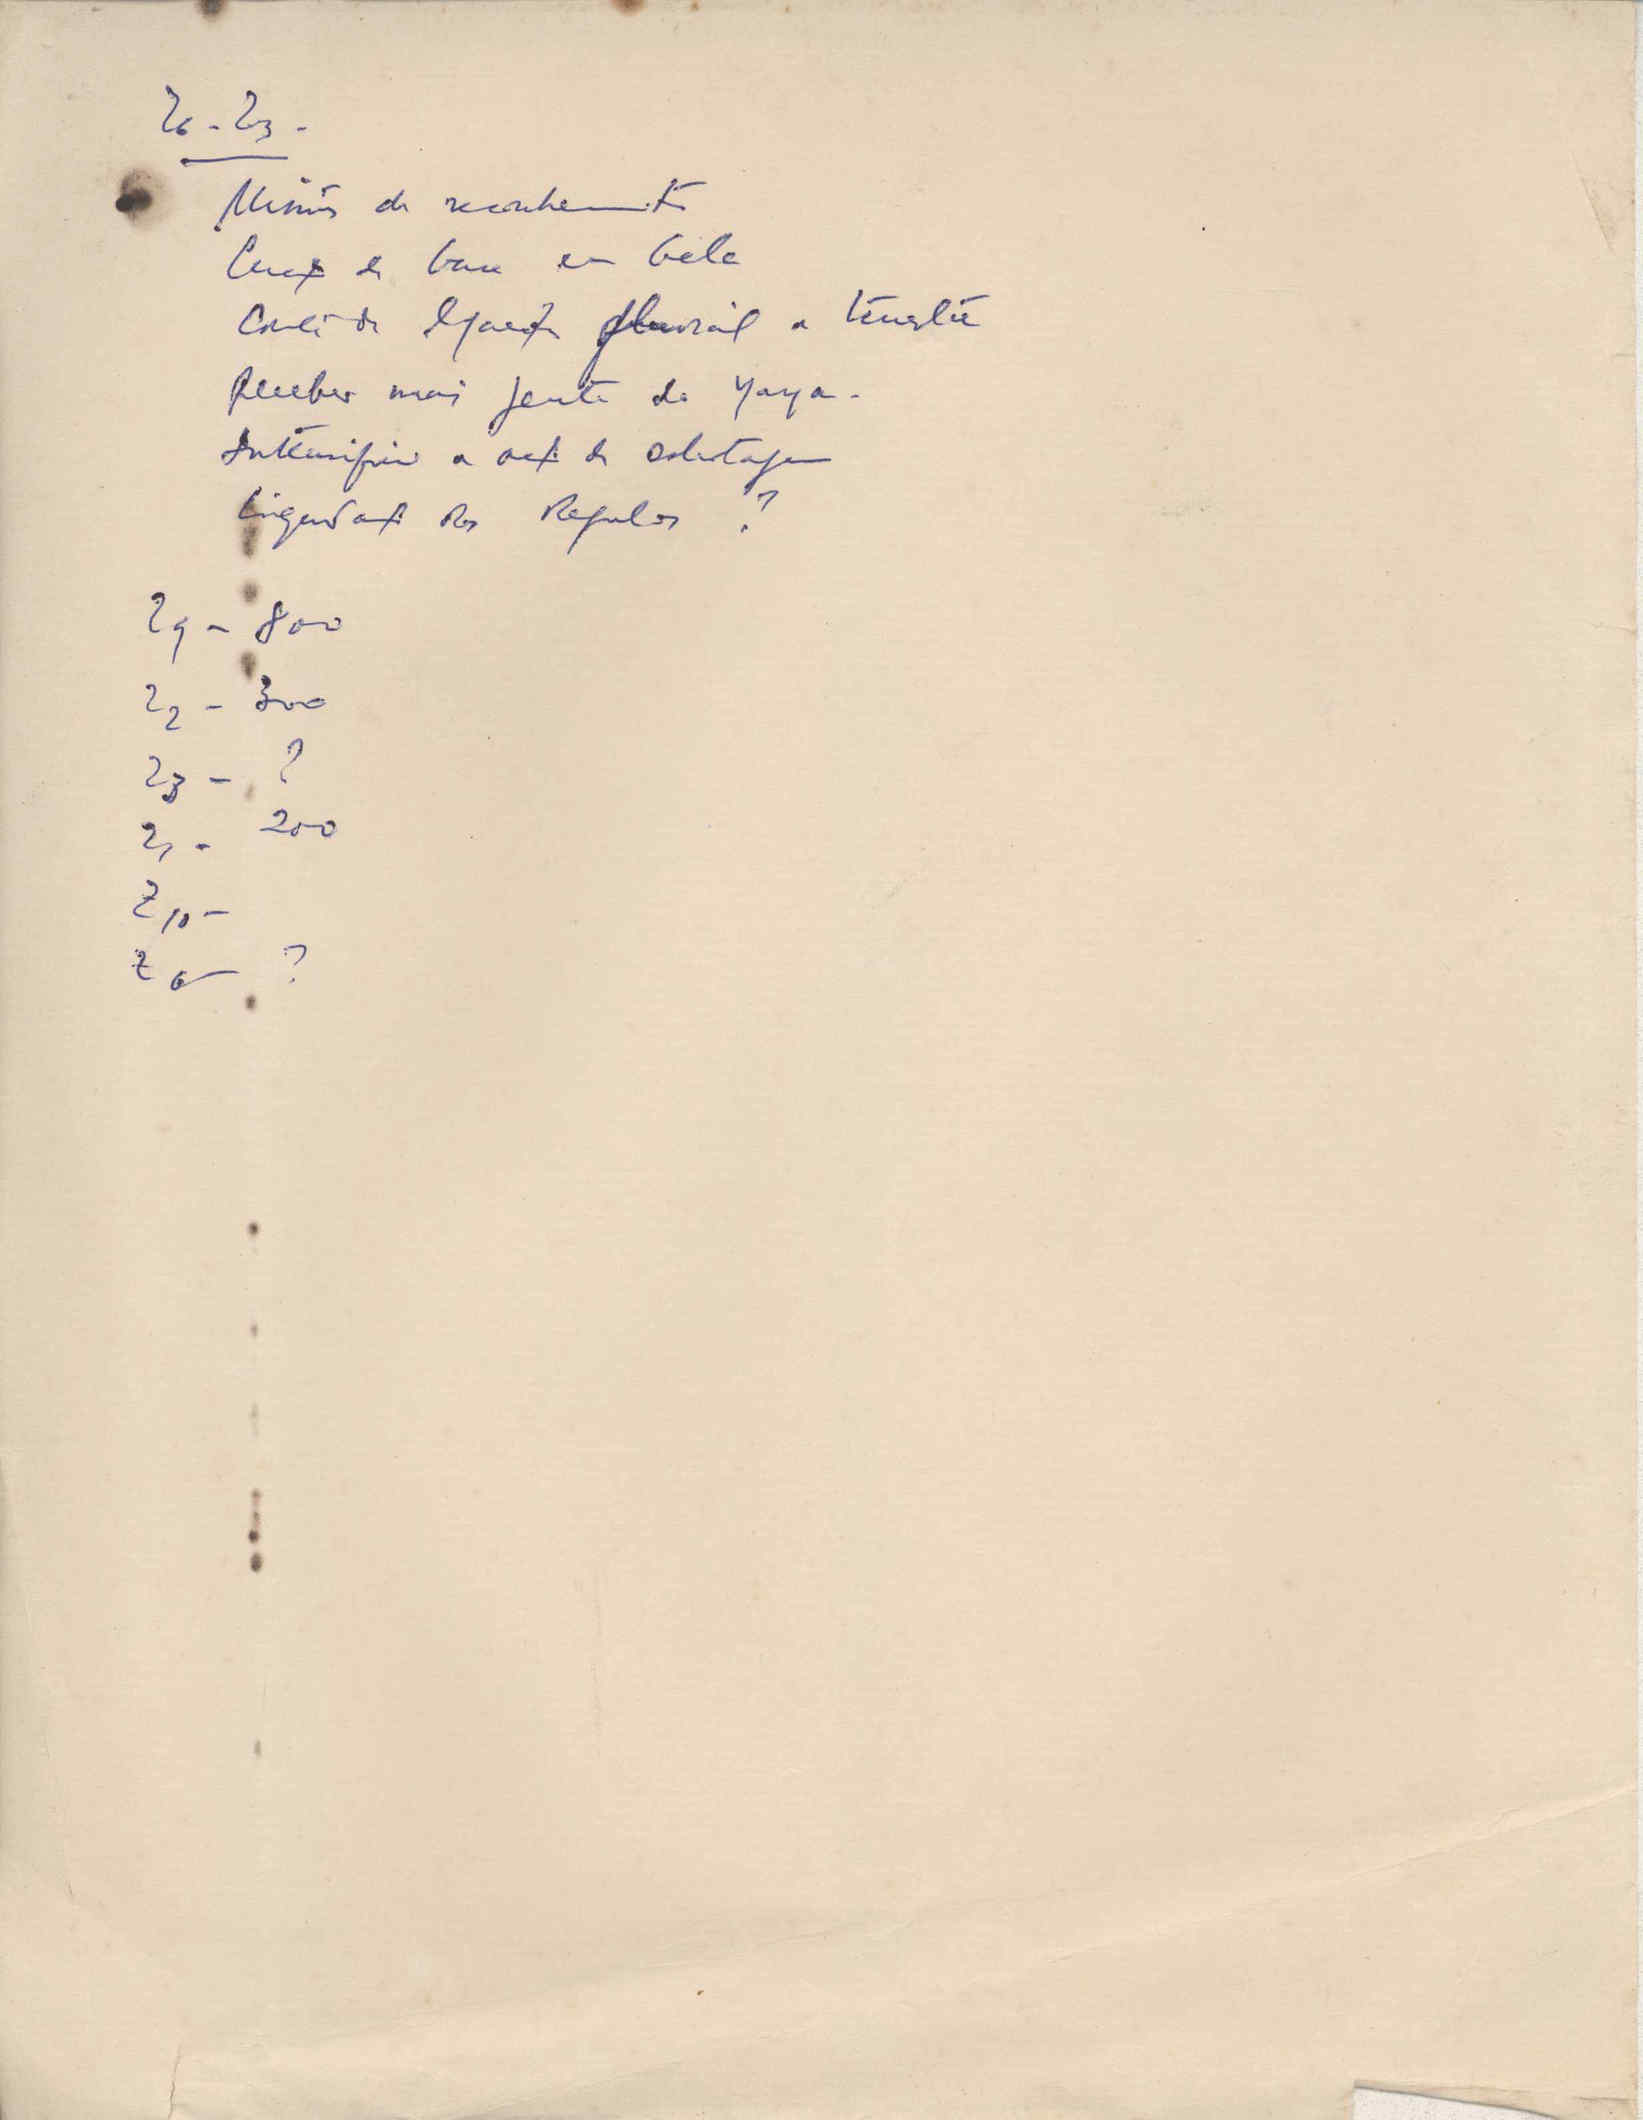 Z6 - Z3 -
Missões de reconhecimento
Criação de base em Beli
Comité de ligação fluvial e terrestre
Receber mais gente de Yaya -
Intensificar a ação de sabotagem
Liquidação dos Regulos ?
Z9 - 800
Z2 - 300
Z3 - ?
Z1 - 200
Z10 -
Z6 - ?